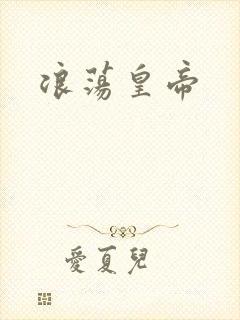 浪荡皇帝
愛夏兒